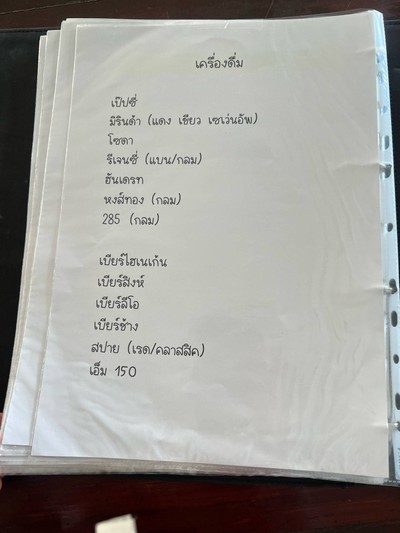 เครื่องดื่ม
เป๊ปซี่
มิรินด้า (แดง เขียว เซเว่นอัพ)
โซดา
รีเจนซี่ (แบน/กลม)
ฮันเดรท
หงส์ทอง (กลม)
285 (กลม)
เบียร์ไฮเนเก้น
เบียร์สิงห์
เบียร์ลีโอ
เบียร์ช้าง
สปาย (เรด/คลาสสิค)
เอ็ม 150